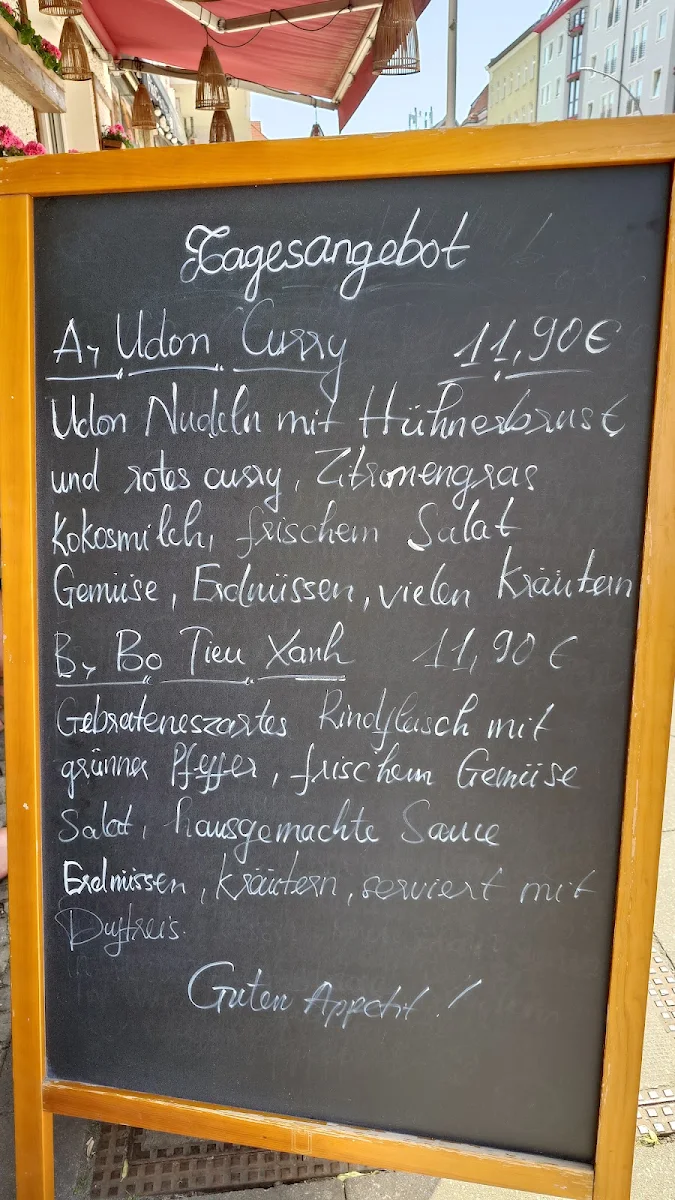 Tagesangebot
A, Udon Curry 11,90€
Udon Nudeln mit Hühnerbrust
und rotes curry, Zitronengras
Kokosmilch, frischem Salat
Gemüise, Erdnüissen, vielen Kräutern
B, Bo Tieu Xanh 11,90€
Gebrateneszartes Rindfleisch mit
grünner Pfeffer, frischem Gemüise
Salat, hausgemachte Sauce
Erdnüssen, Kräutern, serviert mit
Duftreis.
Guten Appetit!